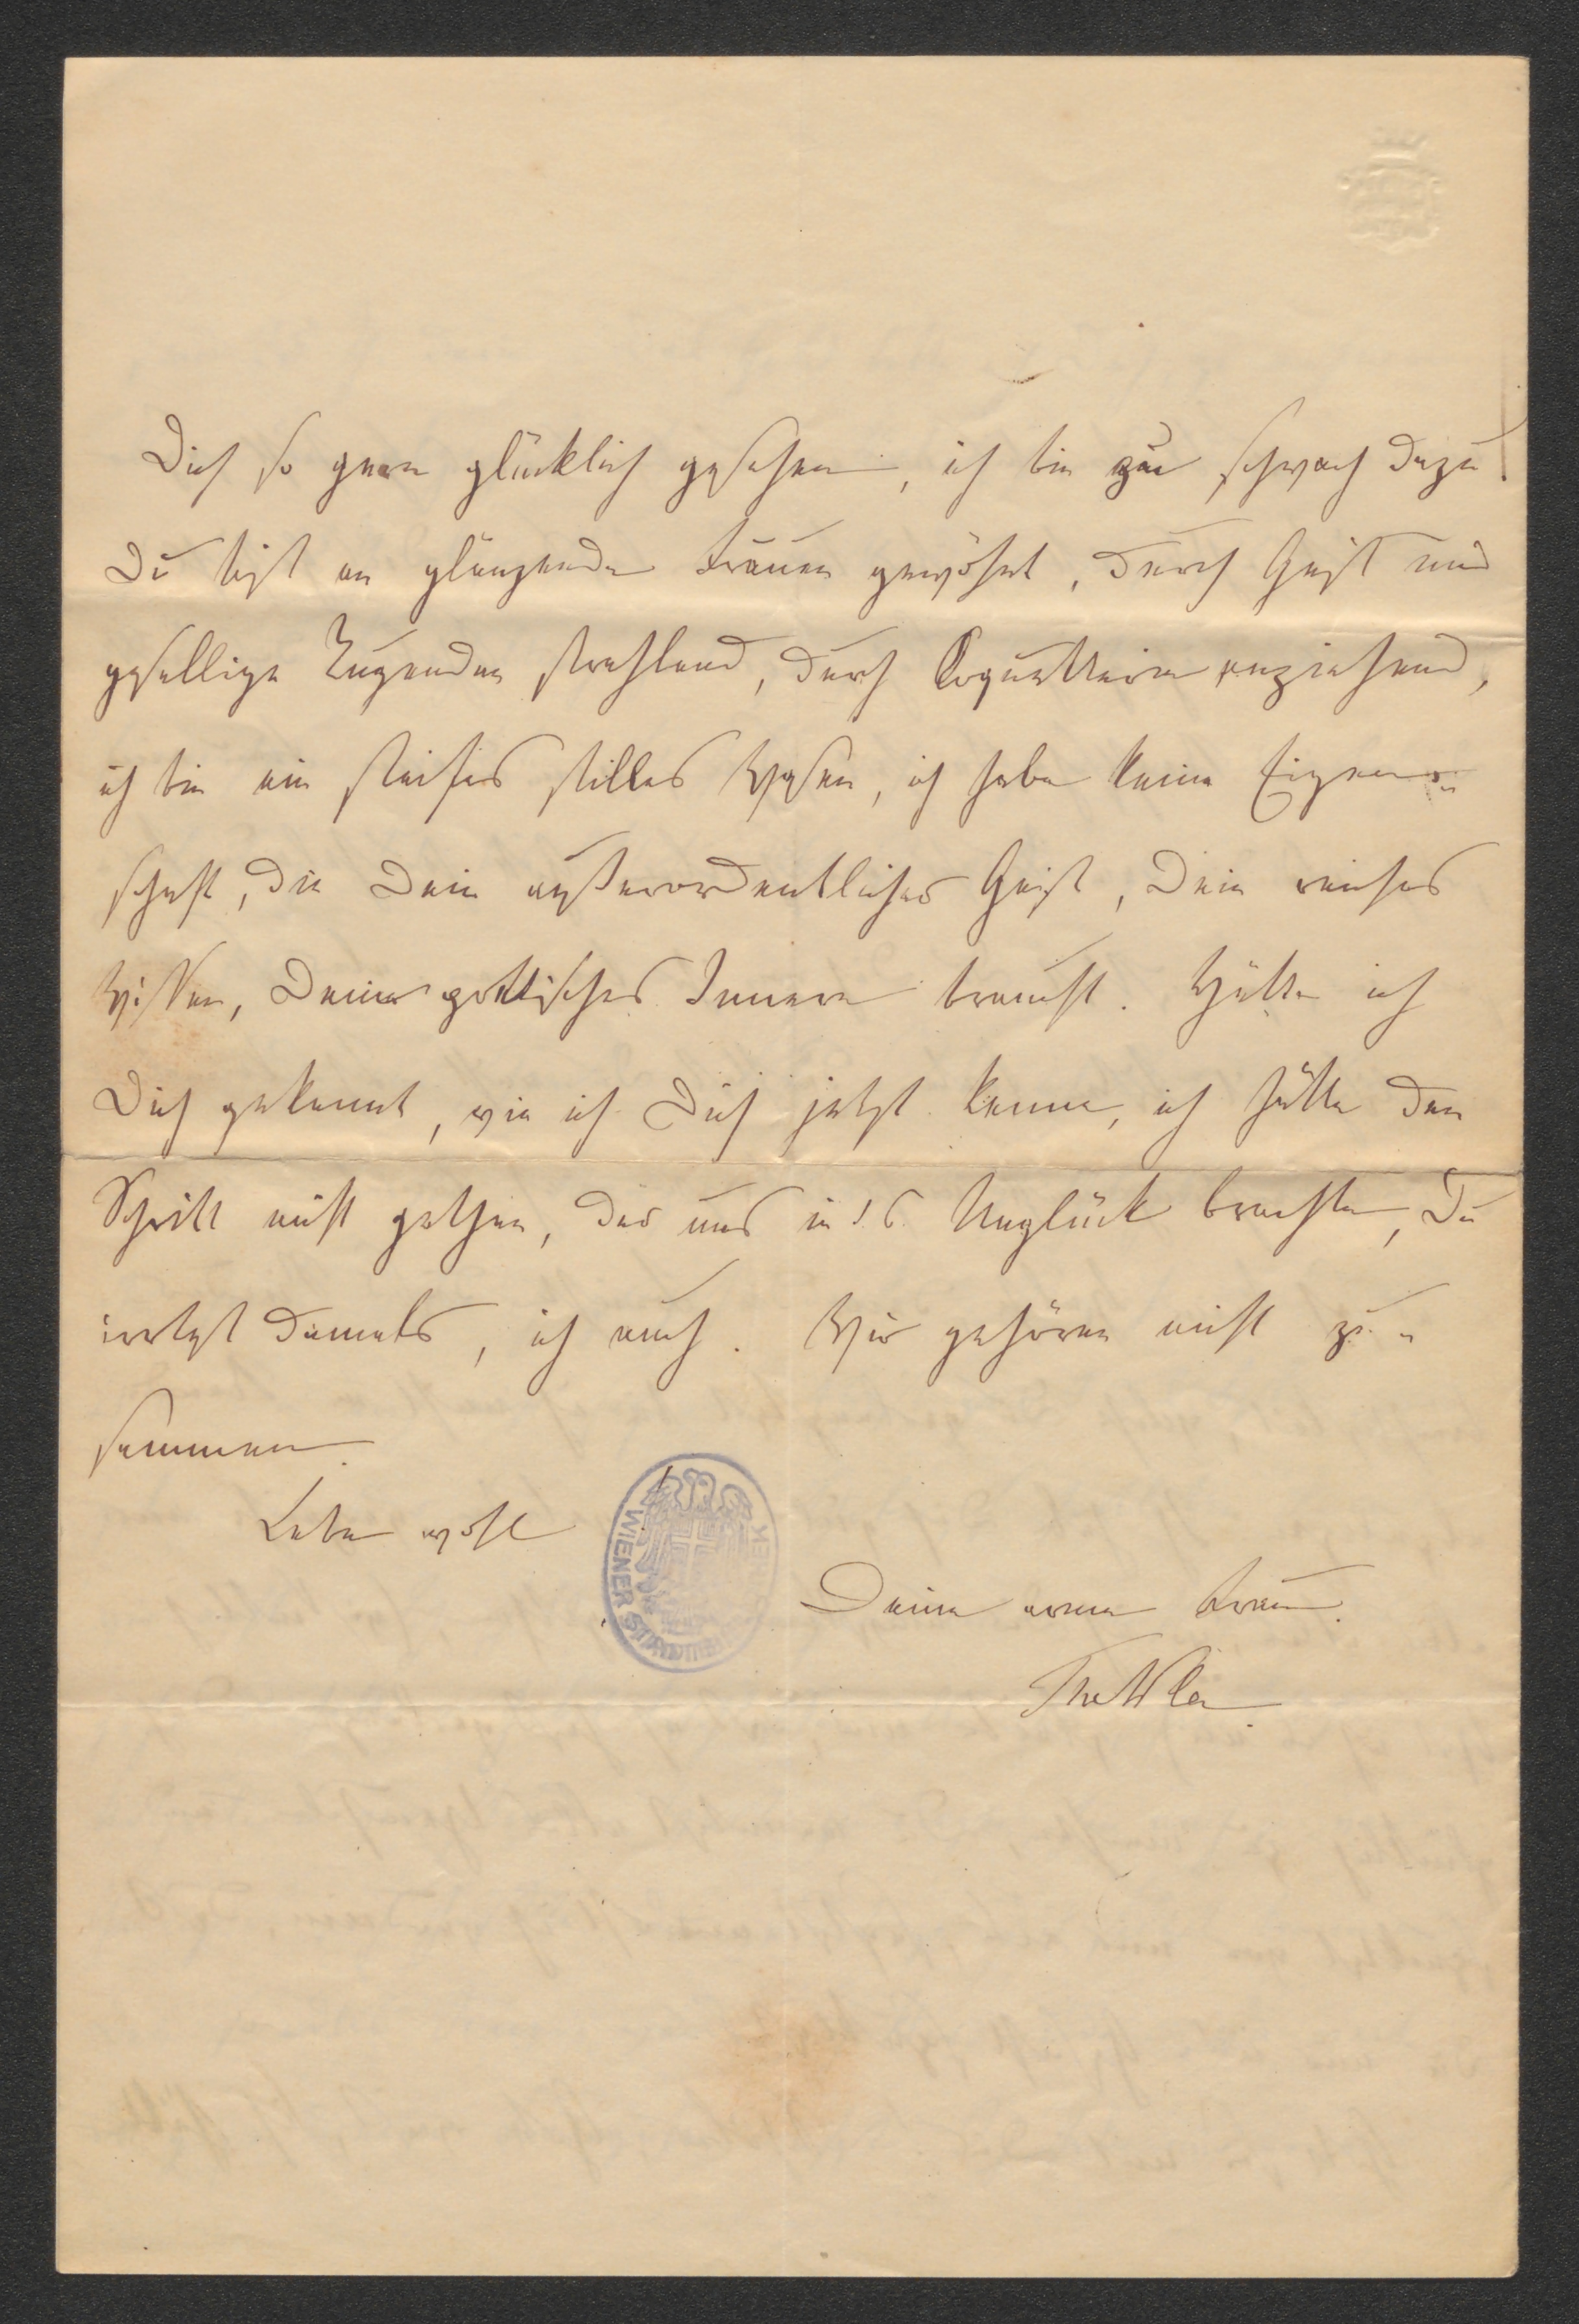 Dich so gern glücklich gesehen, ich bin zu schwach dazu!
Du bist an glänzende Frauen gewöhnt, durch Geist und
gesellige Tugenden strahlend, durch Coquetterie anziehend,
ich bin ein steifes stilles Wesen, ich habe keine Eigen-
schaft, die Dein außerordentlicher Geist, Dein reiches
Wissen, Dein poetisches Innere braucht. Hätte ich
Dich gekannt, wie ich Dich jetzt kenne, ich hätte den
Schritt nicht gethan, der uns in's Unglück brachte, Du
irrtest damals, ich auch. Wir gehören nicht zu-
sammen.
Lebe wohl
WIENER
Deine arme Frau.
Thekla